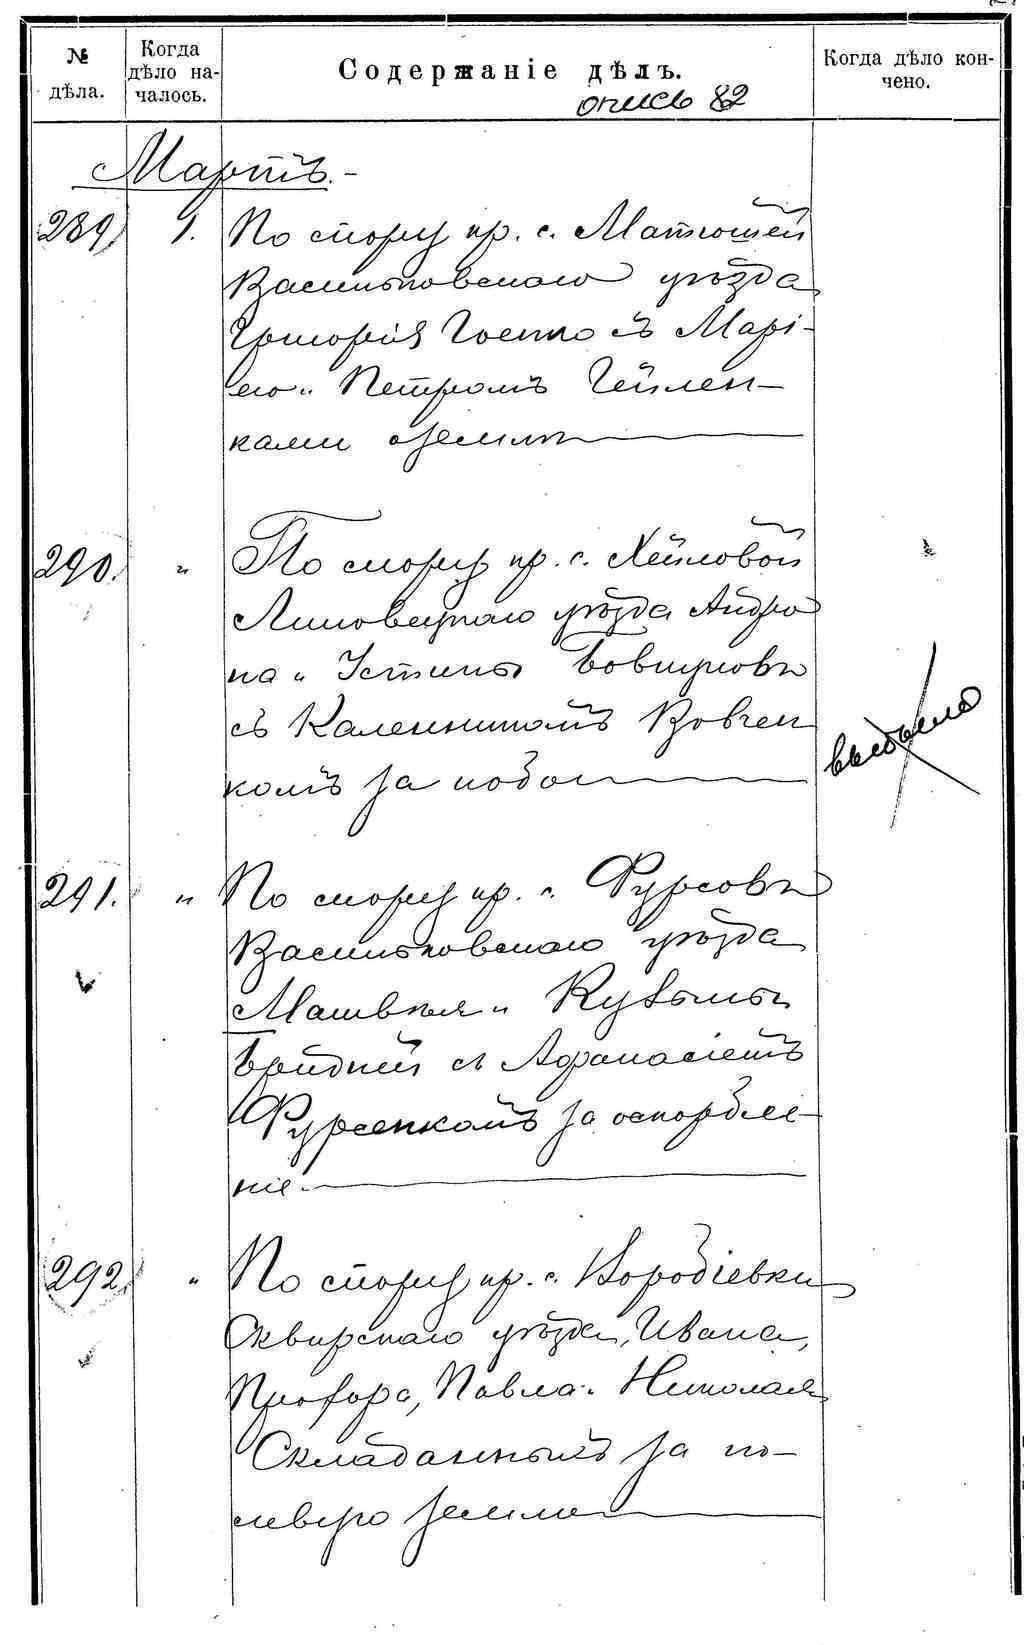 № дѣла.
Когда дѣло на-
чалось.
Содержаніе дѣлъ.
Когда дѣло кон-
чено.
опись 82
Мартъ.-
289) 1. По спору кр. с. Матюшей
Васильковскаго уѣзда
Григорія Гостю съ Марі-
ею и Петромъ Гейлен-
ками о землѣ
290. " По спору кр. с. Хейловой
Липовецкаго уѣзда Андро
на и Устины Бовкуновъ
съ Каленникомъ Вовчен
комъ за побои
выбыло
291. " По спору кр. с. Фурсовъ
Васильковскаго уѣзда
Матвѣя и Кузьмы
Бридней съ Афанасіемъ
Фурсенкомъ за оскорбле-
ніе.
292. " По спору кр. с. Воробіевки
Сквирскаго уѣзда, Ивана,
Профора, Павла и Николая
Складанныхъ за по-
левую землю